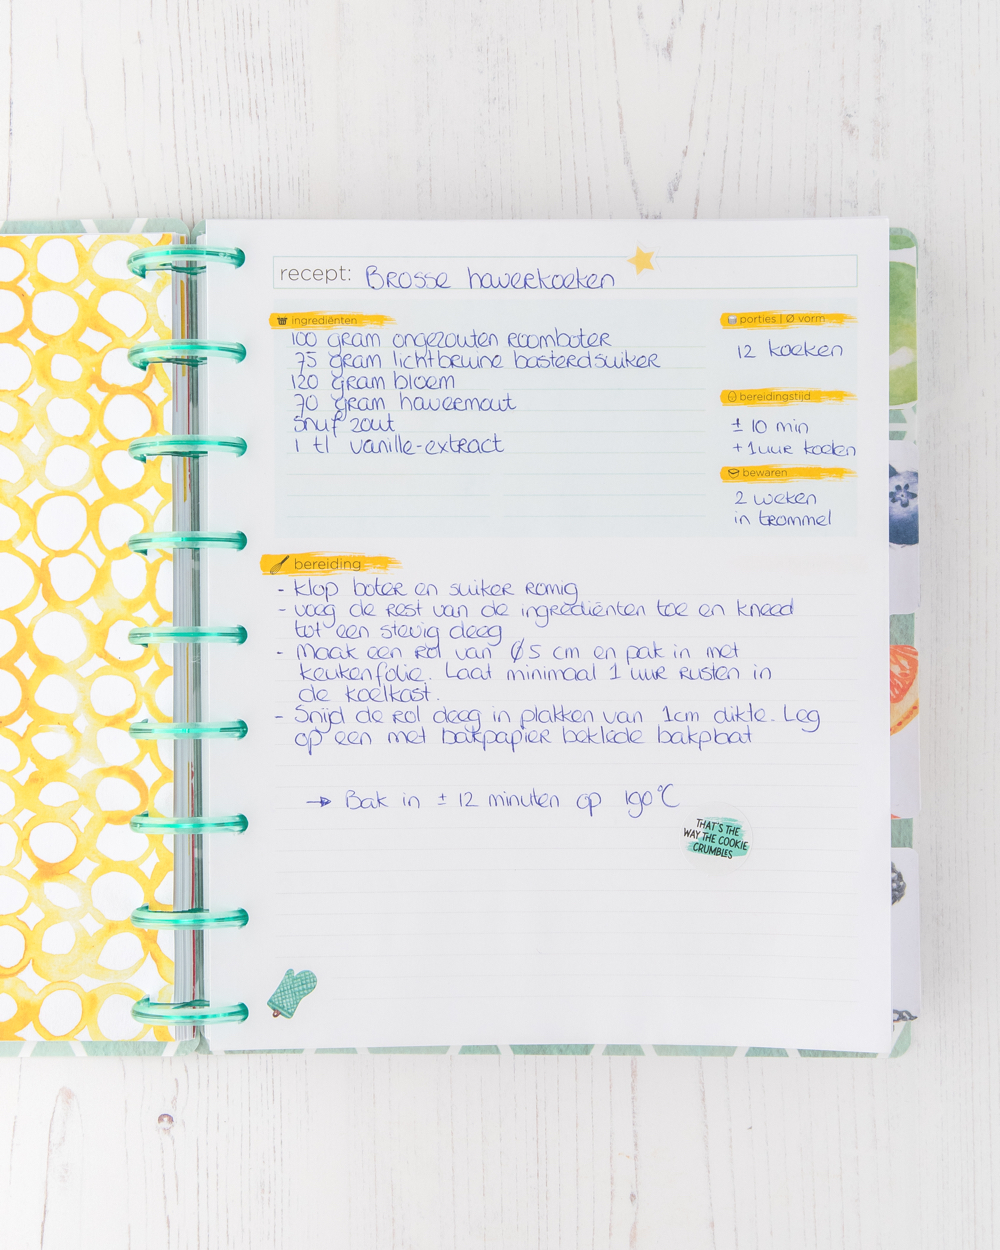 recept: Brosse haverkoeken
ingrediënten
100 gram ongezouten roomboter
75 gram lichtbruine basterdsuiker
120 gram bloem
70 gram havermout
snuf zout
1 tl vanille-extract
porties | Ø vorm
12 koeken
bereidingstijd
± 10 min
+ 1 uur koelen
bewaren
2 weken
in trommel
bereiding
- Klop boter en suiker romig
- voeg de rest van de ingrediënten toe en kneed
tot een stevig deeg
- Maak een rol van Ø 5 cm en pak in met
keukenfolie. Laat minimaal 1 uur rusten in
de koelkast.
- Snijd de rol deeg in plakken van 1cm dikte. Leg
op een met bakpapier beklede bakplaat
→ Bak in ± 12 minuten op 190°C
THAT'S THE
WAY THE COOKIE
CRUMBLES